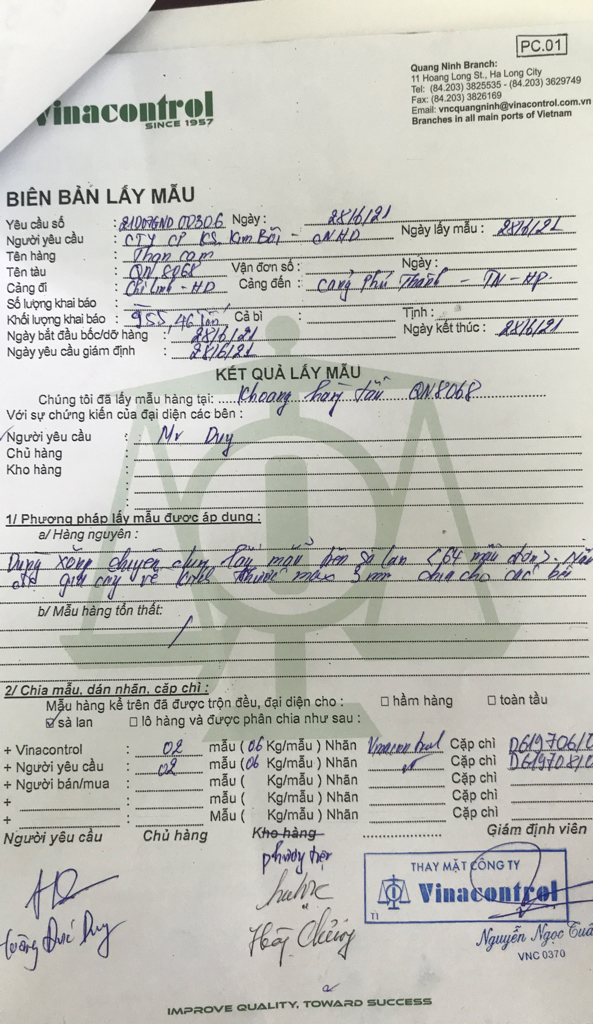 PC.01
Quang Ninh Branch:
11 Hoang Long St., Ha Long City
Tel: (84.203) 3825535 - (84.203) 3629749
Fax: (84.203) 3826169
Email: vncquangninh@vinacontrol.com.vn
Branches in all main ports of Vietnam
Vinacontrol
SINCE 1957
BIÊN BẢN LẤY MẪU
Yêu cầu số : 21D07GND00306 Ngày : 28/6/21
Người yêu cầu : CTY CP KS. Kim Bôi - CNHD Ngày lấy mẫu : 28/6/21
Tên hàng : Than cám
Tên tàu : QN 8068 Vận đơn số : Ngày :
Cảng đi : Chí Linh - HD Cảng đến : cảng Phú Thành - TN - HP
Số lượng khai báo :
Khối lượng khai báo : 955,46 Tấn Cả bì : Tịnh :
Ngày bắt đầu bốc/dỡ hàng : 28/6/21 Ngày kết thúc : 28/6/21
Ngày yêu cầu giám định : 28/6/21
KẾT QUẢ LẤY MẪU
Chúng tôi đã lấy mẫu hàng tại: Khoang hàng tàu QN8068
Với sự chứng kiến của đại diện các bên :
Người yêu cầu : Mr Duy
Chủ hàng :
Kho hàng :
1/ Phương pháp lấy mẫu được áp dụng :
a/ Hàng nguyên :
Dùng xẻng chuyên dụng lấy mẫu trên sà lan (64 mẫu đơn).
về kích thước max 3 mm chia cho các bên
b/ Mẫu hàng tổn thất:
/
2/ Chia mẫu, dán nhãn, cặp chì :
Mẫu hàng kể trên đã được trộn đều, đại diện cho : □ hầm hàng □ toàn tầu
☑ sà lan □ lô hàng và được phân chia như sau :
+ Vinacontrol : 02 mẫu (06 Kg/mẫu ) Nhãn Vinacontrol Cặp chì D619706/0
+ Người yêu cầu : 02 mẫu (06 Kg/mẫu ) Nhãn Cặp chì D619708/0
+ Người bán/mua : mẫu ( Kg/mẫu ) Nhãn Cặp chì
+ : mẫu ( Kg/mẫu ) Nhãn Cặp chì
+ : Mẫu ( Kg/mẫu ) Nhãn Cặp chì
Người yêu cầu Chủ hàng Kho hàng Giám định viên
phương tiện
THAY MẶT CÔNG TY
Vinacontrol
T1
Đức Duy
Nguyễn Ngọc Tuấ
VNC 0370
IMPROVE QUALITY, TOWARD SUCCESS